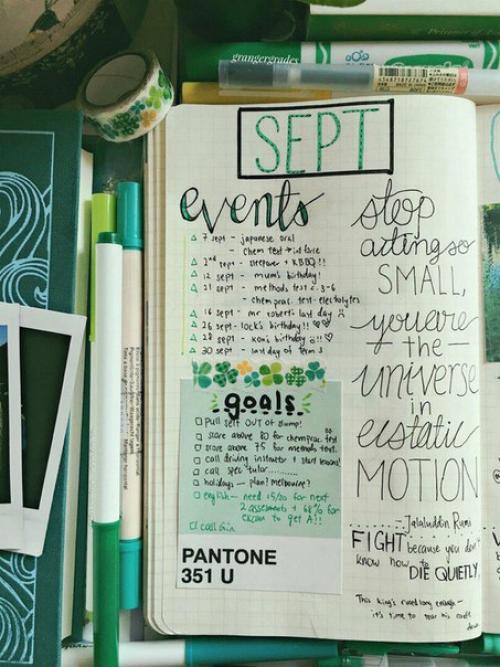 grangergrades
SEPT
events
7 sept - japanese oral
- chem test
2nd sept - sleepover + KBBQ!!
12 sept - mum's birthday!
21 sept - methods test c.3-6
- chem prac. test - electrolytes
16 sept - mr robert's last day
26 sept - lock's birthday!!
28 sept - birthday!!
30 sept - last day of Term 3
goals.
Pull self OUT OF slump!
score above 80 for chem prac. test
score above 75 for methods test.
call driving instructor + start lessons!
call spec tutor......
holidays - plan! Melbourne?
english - need 15/20 for next
2 assessments + 68% for
exam to get A!!
call
PANTONE
351 U
stop
acting so
SMALL,
you are
- the -
universe
in
ecstatic
MOTION
- Jalaluddin Rumi
FIGHT because you don't
know how to DIE QUIETLY.
This king's ruled long enough -
it's time to tear his castle
down